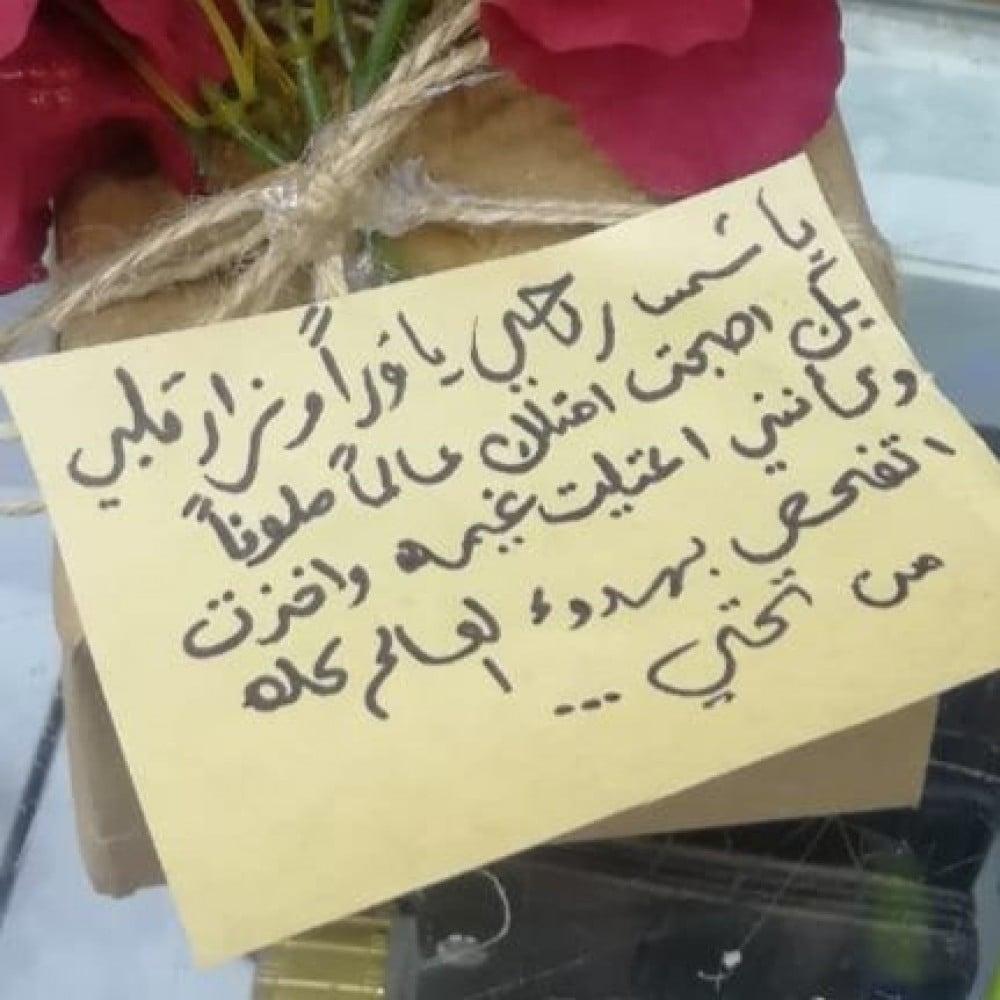 يا شمس رحي يا نوراً ونزار قلبي
بكِ اصبحت امتلك عالماً ملوناً
وكأنني اعتليت غيمه واخذت
اتفحص بهدوء العالم كله
من تحتي ...